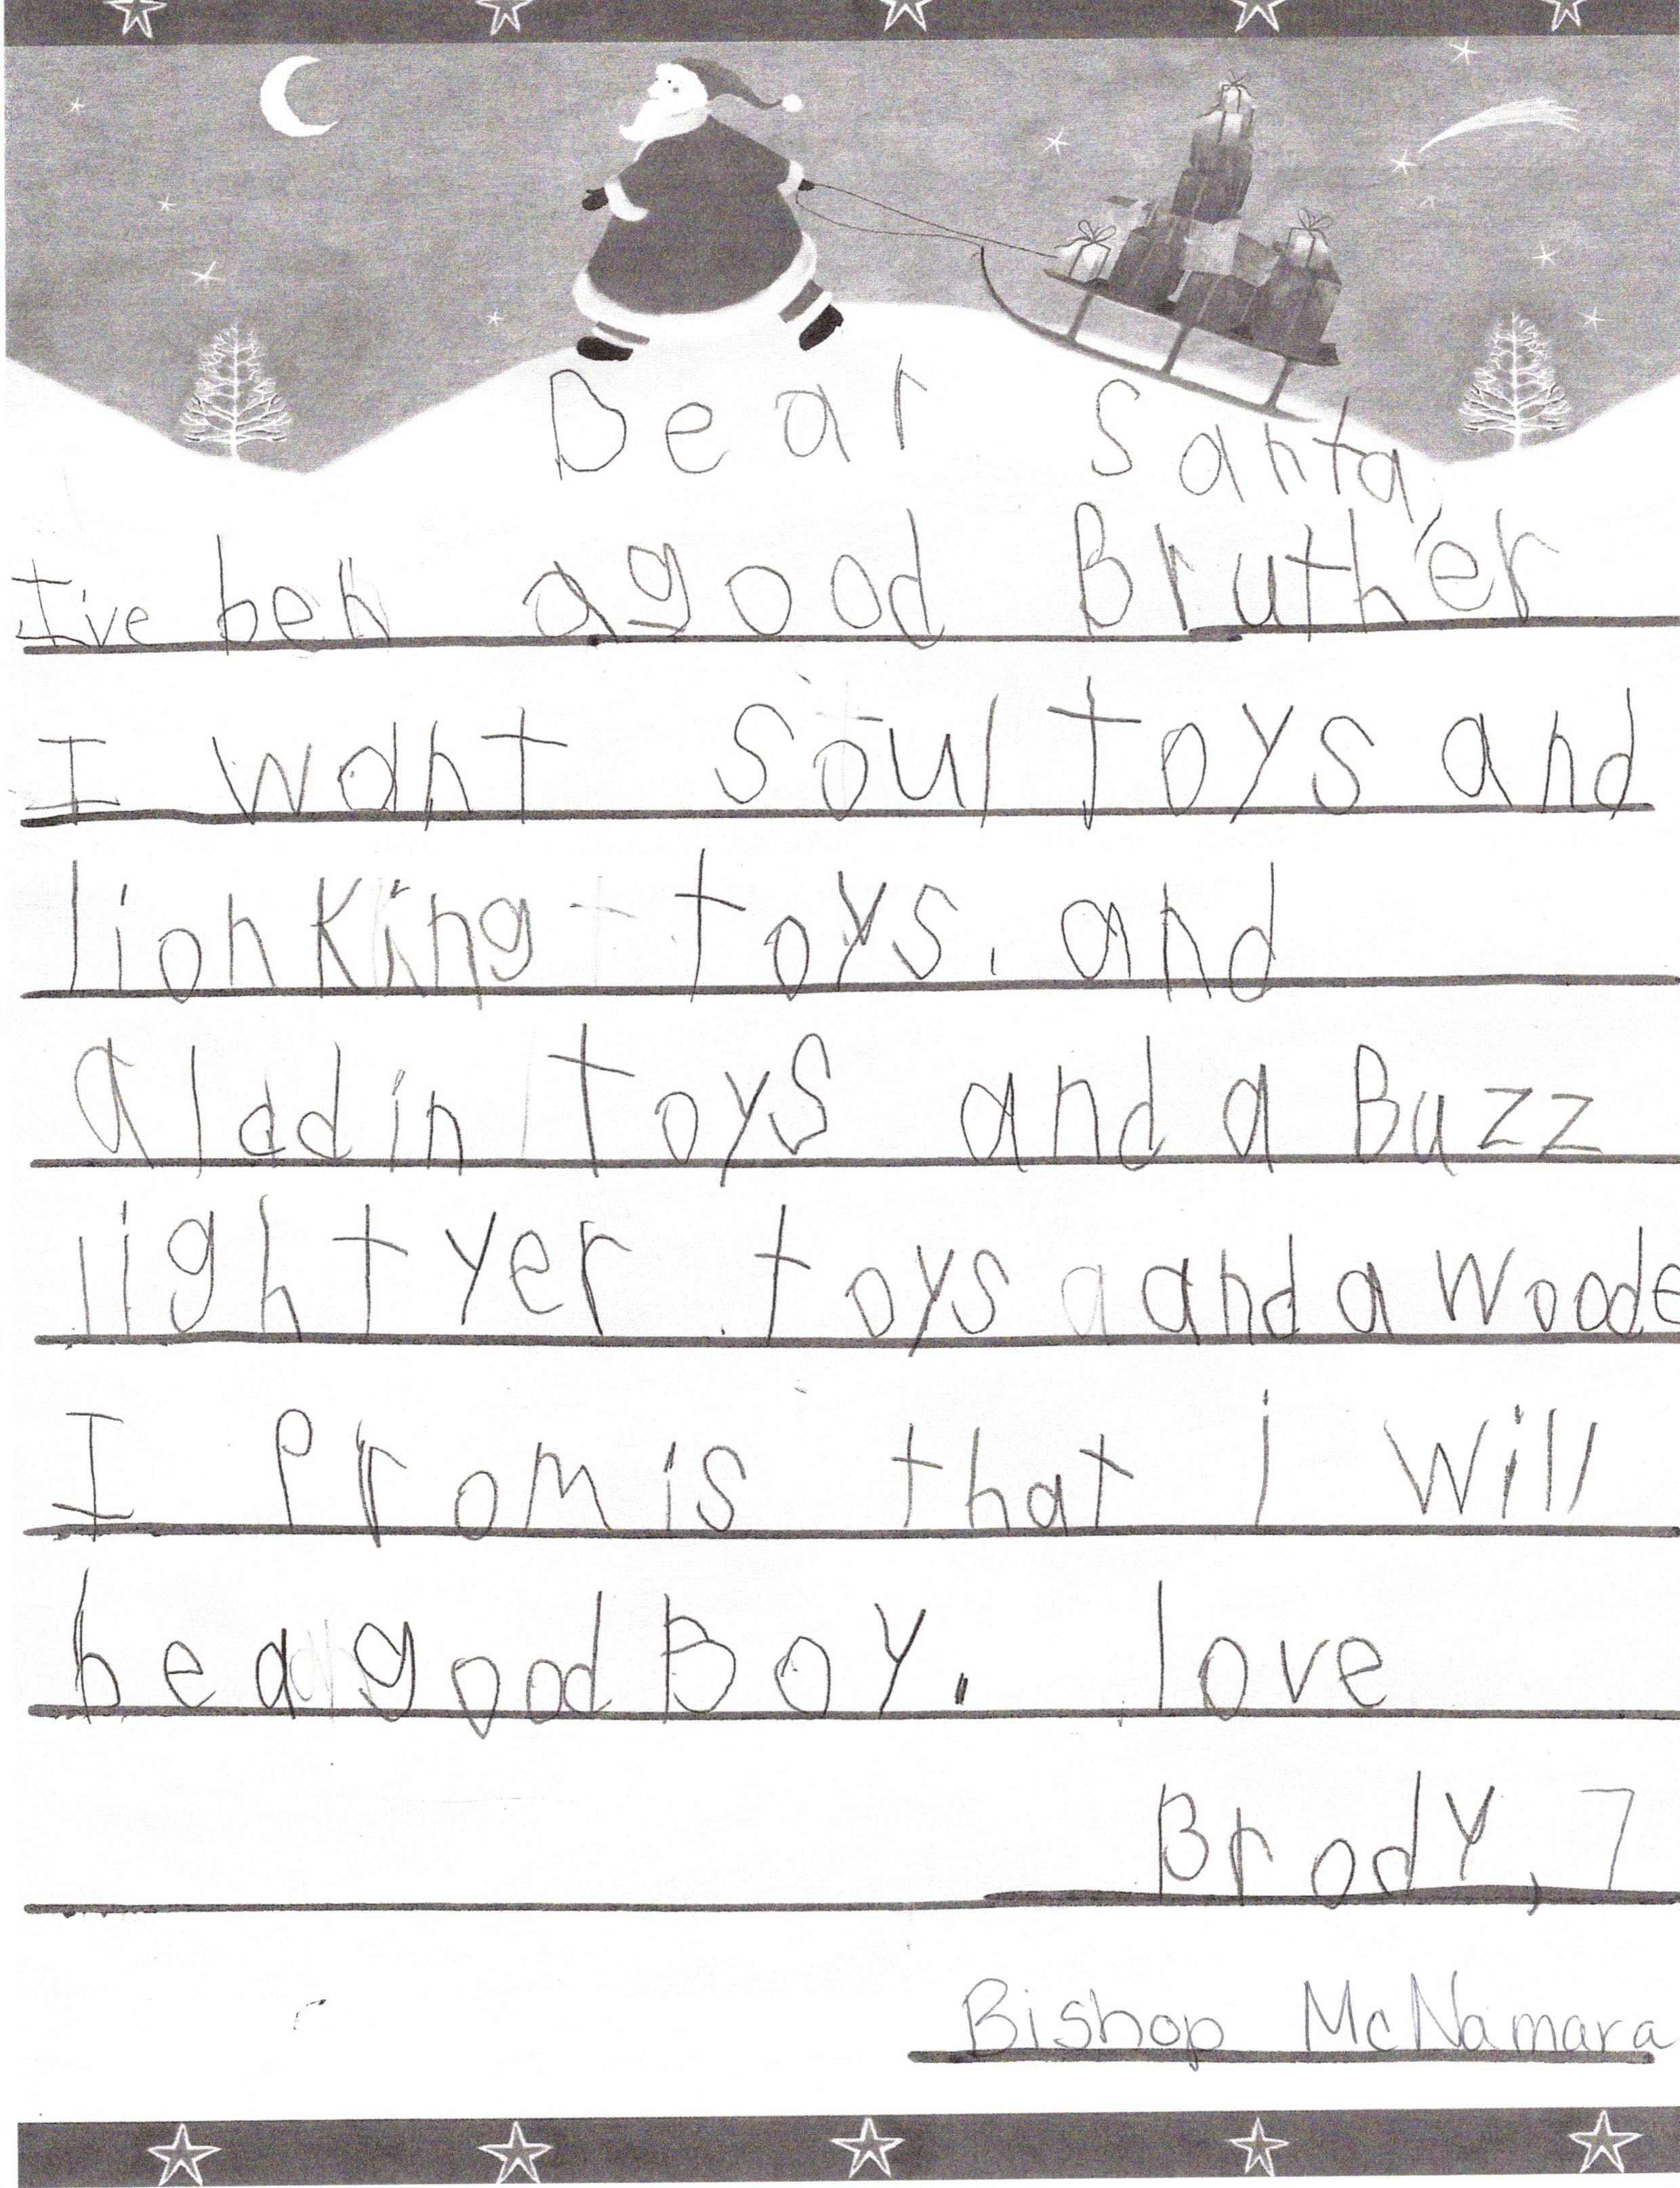 Dear Santa,
I've ben a good Bruther
I want soul toys and
lion King toys. and
aladdin toys and a Buzz
lightyer toys and a Woode
I Promis that I will
be a good Boy. love
Brody, 7
Bishop McNamara